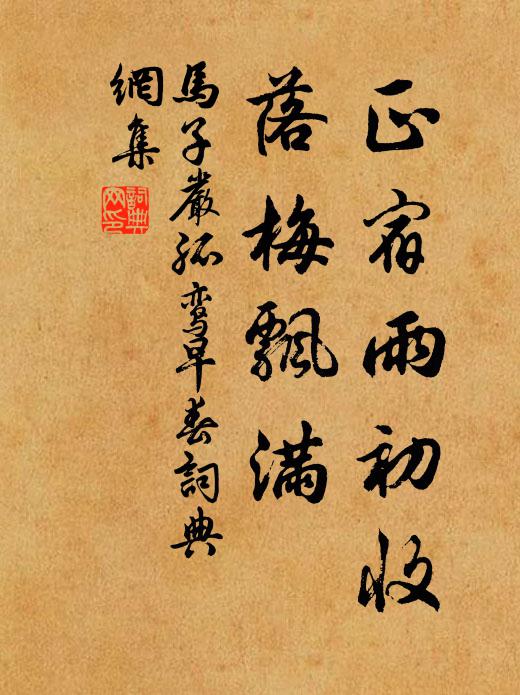 正宿雨初收
落梅飄滿
馬子嚴孤鸞早春詞典
網集
詞典
网印